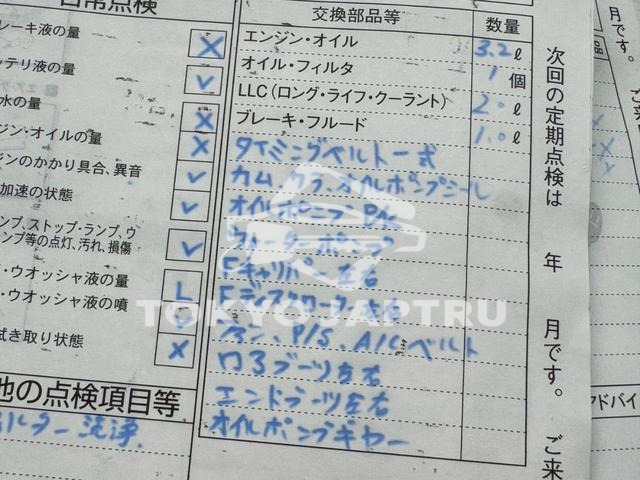 日常点検
レーキ液の量
ッテリ液の量
水の量
ジン・オイルの量
ジンのかかり具合、異音
加速の状態
ンプ、ストップ・ランプ、ウ
ンプ等の点灯、汚れ、損傷
・ウオッシャ液の量
・ウオッシャ液の噴
拭き取り状態
他の点検項目等
ルター 洗浄
交換部品等 数量
エンジン・オイル 3.2ℓ
オイル・フィルタ 1個
LLC(ロング・ライフ・クーラント) 2.0ℓ
ブレーキ・フルード 1.0ℓ
タイミングベルト一式
カム、クラ、オイルポンプシール
オイルポンプ
ウォーターポンプ
Fキャリパー左右
Fディスクローター左右
ファン、P/S、A/Cベルト
ロアブーツ左右
エンドブーツ左右
オイルポンプギヤー
次回の定期点検は 年 月です。 ご来
月です。
アドバイ
TOKYO JAPTRU